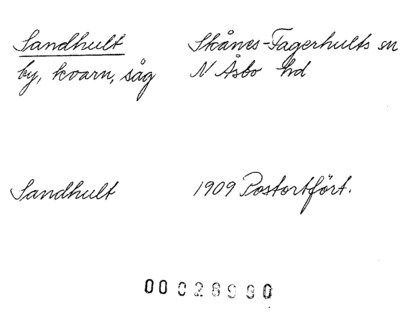 Sandhult Skånes-Fagerhults sn
by, kvarn, såg N Åsbo hd
Sandhult 1909 Postortfört.
00028990